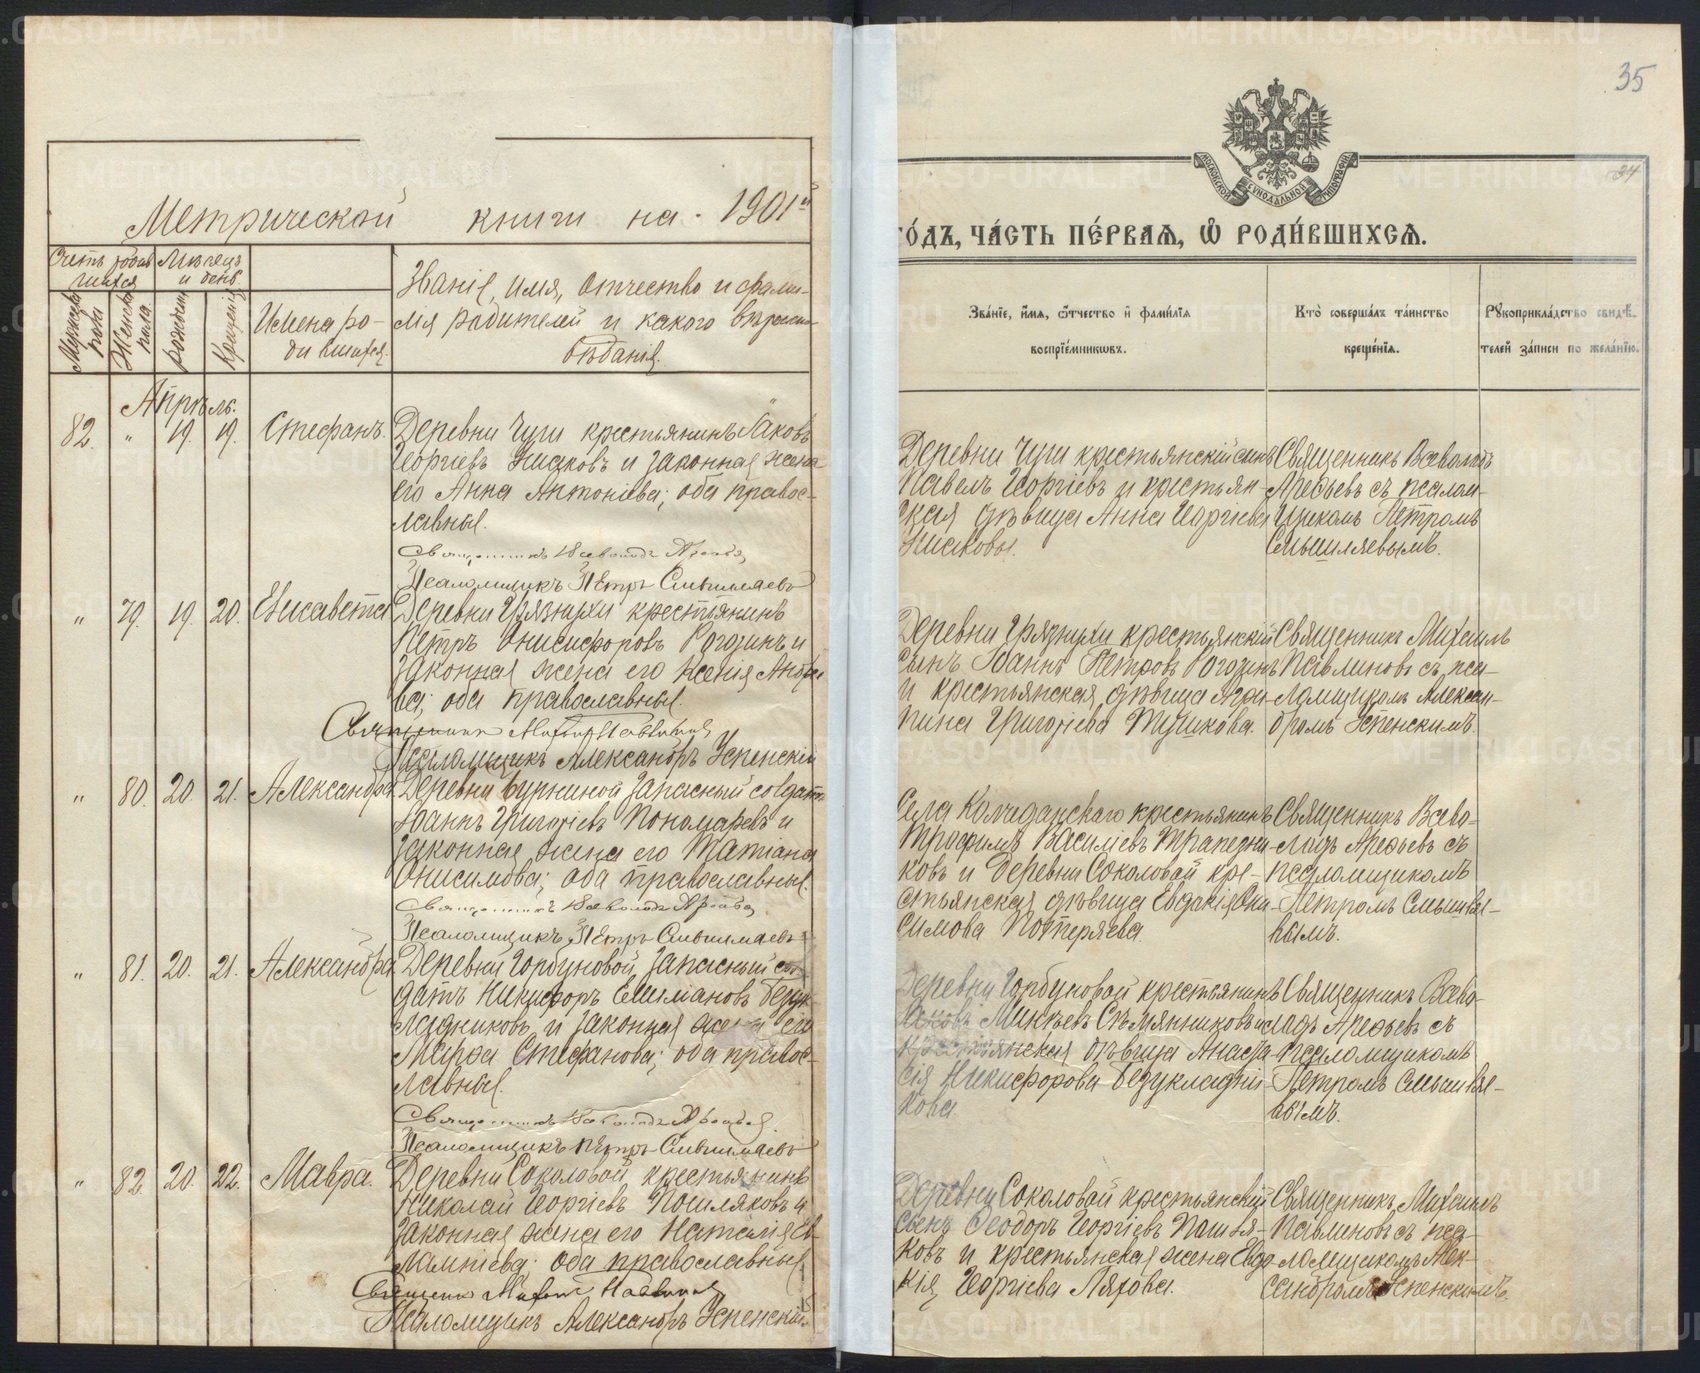 35
34
МОСКОВСКОЙ СѴНОДАЛЬНОЙ ТИПОГРАФІИ
Метрической книги на 1901й
го́дъ, ча́сть пе́рваѧ, ѡ҆ роди́вшихсѧ.
Счетъ родив
шихся
Мѣсяцъ
и день
Мужска
пола
Женска
пола.
рожденія
Крещенія
Имена ро-
дившихся.
Званіе, имя, отчество и фами-
лія родителей и какого вѣроиспо-
вѣданія.
Зва́нїе, и҆́мѧ, ѻ҆́тчество и҆ фами́лїѧ
воспрїе́мникѡвъ.
Кто̀ соверша́лъ та́инство
креще́нїѧ.
Рꙋкоприкла́дство свидѣ́-
телей за́писи по жела́нїю.
Апрѣль.
82. " 19. 19. Стефанъ.
Деревни Чуги крестьянинъ Іаковъ
Георгіевъ и законная жена
его Анна Антоніева; оба правос-
лавные.
Священникъ Всеволодъ Арефьевъ
Псаломщикъ Петръ Смышляевъ
Деревни Чуги крестьянскій сынъ
Павелъ Георгіевъ и крестьян-
ская дѣвица Анна Георгіева
Священникъ Всеволодъ
Арефьевъ съ псалом-
щикомъ Петромъ
Смышляевымъ.
" 79. 19. 20. Елисавета
Деревни Грязнухи крестьянинъ
Петръ Онисифоровъ Рогозинъ и
законная жена его Ксенія Андре
ва; оба православные.
Священникъ Михаилъ Павлиновъ
Псаломщикъ Александръ Успенскій
Деревни Грязнухи крестьянскій
сынъ Іоаннъ Петровъ Рогозинъ
и крестьянская дѣвица Агри-
пина Григорьева Тушкова.
Священникъ Михаилъ
Павлиновъ съ пса-
ломщикомъ Алексан-
дромъ Успенскимъ.
" 80. 20. 21. Александра
Деревни Бурниной запасный солдатъ
Іоаннъ Григорьевъ Пономаревъ и
законная жена его Татіана
Онисимова; оба православные.
Священникъ Всеволодъ Арефьевъ
Псаломщикъ Петръ Смышляевъ
Села Колчеданскаго крестьянинъ
Трофимъ Василіевъ Трапезни-
ковъ и деревни Соколовой кре-
стьянская дѣвица Евдокія Они-
симова Потеряева
Священникъ Всево-
лодъ Арефьевъ съ
псаломщикомъ
Петромъ Смышляе-
вымъ.
" 81. 20. 21. Александра
Деревни Горбуновой, запасный сол
датъ Никифоръ Емиліановъ Безук-
ладниковъ и законная жена его
Марфа Стефанова; оба правос-
лавные.
Священникъ Всеволодъ Арефьевъ.
Псаломщикъ Петръ Смышляевъ
Деревни Горбуновой крестьянинъ
Іаковъ Михѣевъ Смѣмянниковъ и
крестьянская дѣвица Анаста-
сія Никифорова Безукладни-
кова
Священникъ Всево-
лодъ Арефьевъ съ
псаломщикомъ
Петромъ Смышляе-
вымъ.
" 82. 20. 22. Мавра.
Деревни Соколовой, крестьянинъ
Николай Георгіевъ Пошляковъ и
законная жена его Наталія Ев-
лампіева; оба православные.
Священникъ Михаилъ Павлиновъ
Псаломщикъ Александръ Успенскій.
Деревни Соколовой крестьянскій
сынъ Ѳеодоръ Георгіевъ Пошля-
ковъ и крестьянская жена Евдо-
кія Георгіева Ляхова.
Священникъ Михаилъ
Павлиновъ съ пса-
ломщикомъ Алек-
сандромъ Успенскимъ.
METRIKI.GASO-URAL.RU